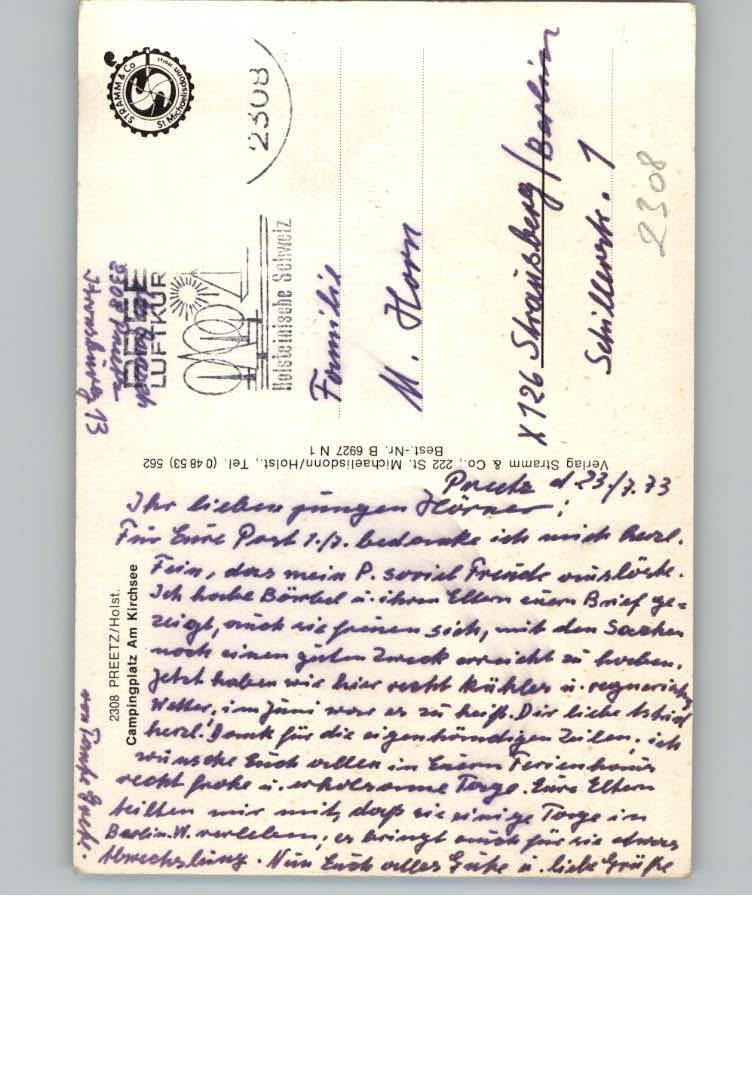 STRAMM & Co
St Michaelisdonn
2308
PREETZ
LUFTKUR
Holsteinische Schweiz
2308 Preetz
13
Familie
M. Horn
X 126 Strausberg/Berlin
Schillerstr. 1
2308
Verlag Stramm & Co., 222 St. Michaelisdonn/Holst., Tel. (0 48 53) 562
Best.-Nr. B 6927 N 1
2308 PREETZ/Holst.
Campingplatz Am Kirchsee
Preetz d 23./7.73
Ihr lieben jungen Hörner!
Für Eure Post 1./7. bedanke ich mich herzl.
Fein, das mein P. soviel Freude auslöste.
Ich habe Bärbel u. ihren Eltern euern Brief ge=
zeigt, auch sie freuen sich, mit den Sachen
noch einen guten Zweck erreicht zu haben.
Jetzt haben wir hier recht kühles u. regnerisches
Wetter, im Juni war es zu heiß. Dir liebe Astrid
herzl. Dank für die eigenhändigen Zeilen, ich
wünsche Euch allen in Euerm Ferienhaus
recht frohe u. erholsame Tage. Eure Eltern
teilten mir mit, daß sie einige Tage in
Berlin-W. verleben, es bringt auch für sie etwas
Abwechslung. Nun Euch alles Gute u. liebe Grüße
von Tante